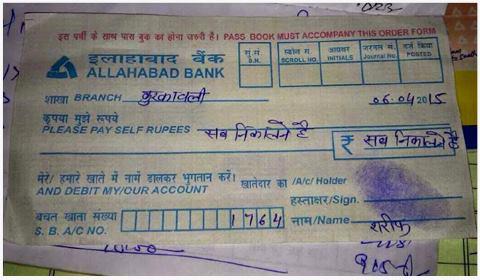 इस पर्ची के साथ पास बुक का होना जरुरी है। PASS BOOK MUST ACCOMPANY THIS ORDER FORM
इलाहाबाद बैंक
ALLAHABAD BANK
सु.नं. S.N.
स्क्रोल नं. SCROLL NO.
आद्यक्षर INITIALS
जरनल नं. Journal No.
दर्ज किया POSTED
शाखा BRANCH
06.04.2015
कृपया मुझे रूपये
PLEASE PAY SELF RUPEES सब निकालने है
₹ सब निकालने है
मेरे/ हमारे खाते में नामें डालकर भुगतान करें।
AND DEBIT MY/OUR ACCOUNT
खातेदार का /A/c/ Holder
हस्ताक्षर/Sign.
बचत खाता संख्या
S. B. A/C NO. 1764
नाम/Name शरीफ